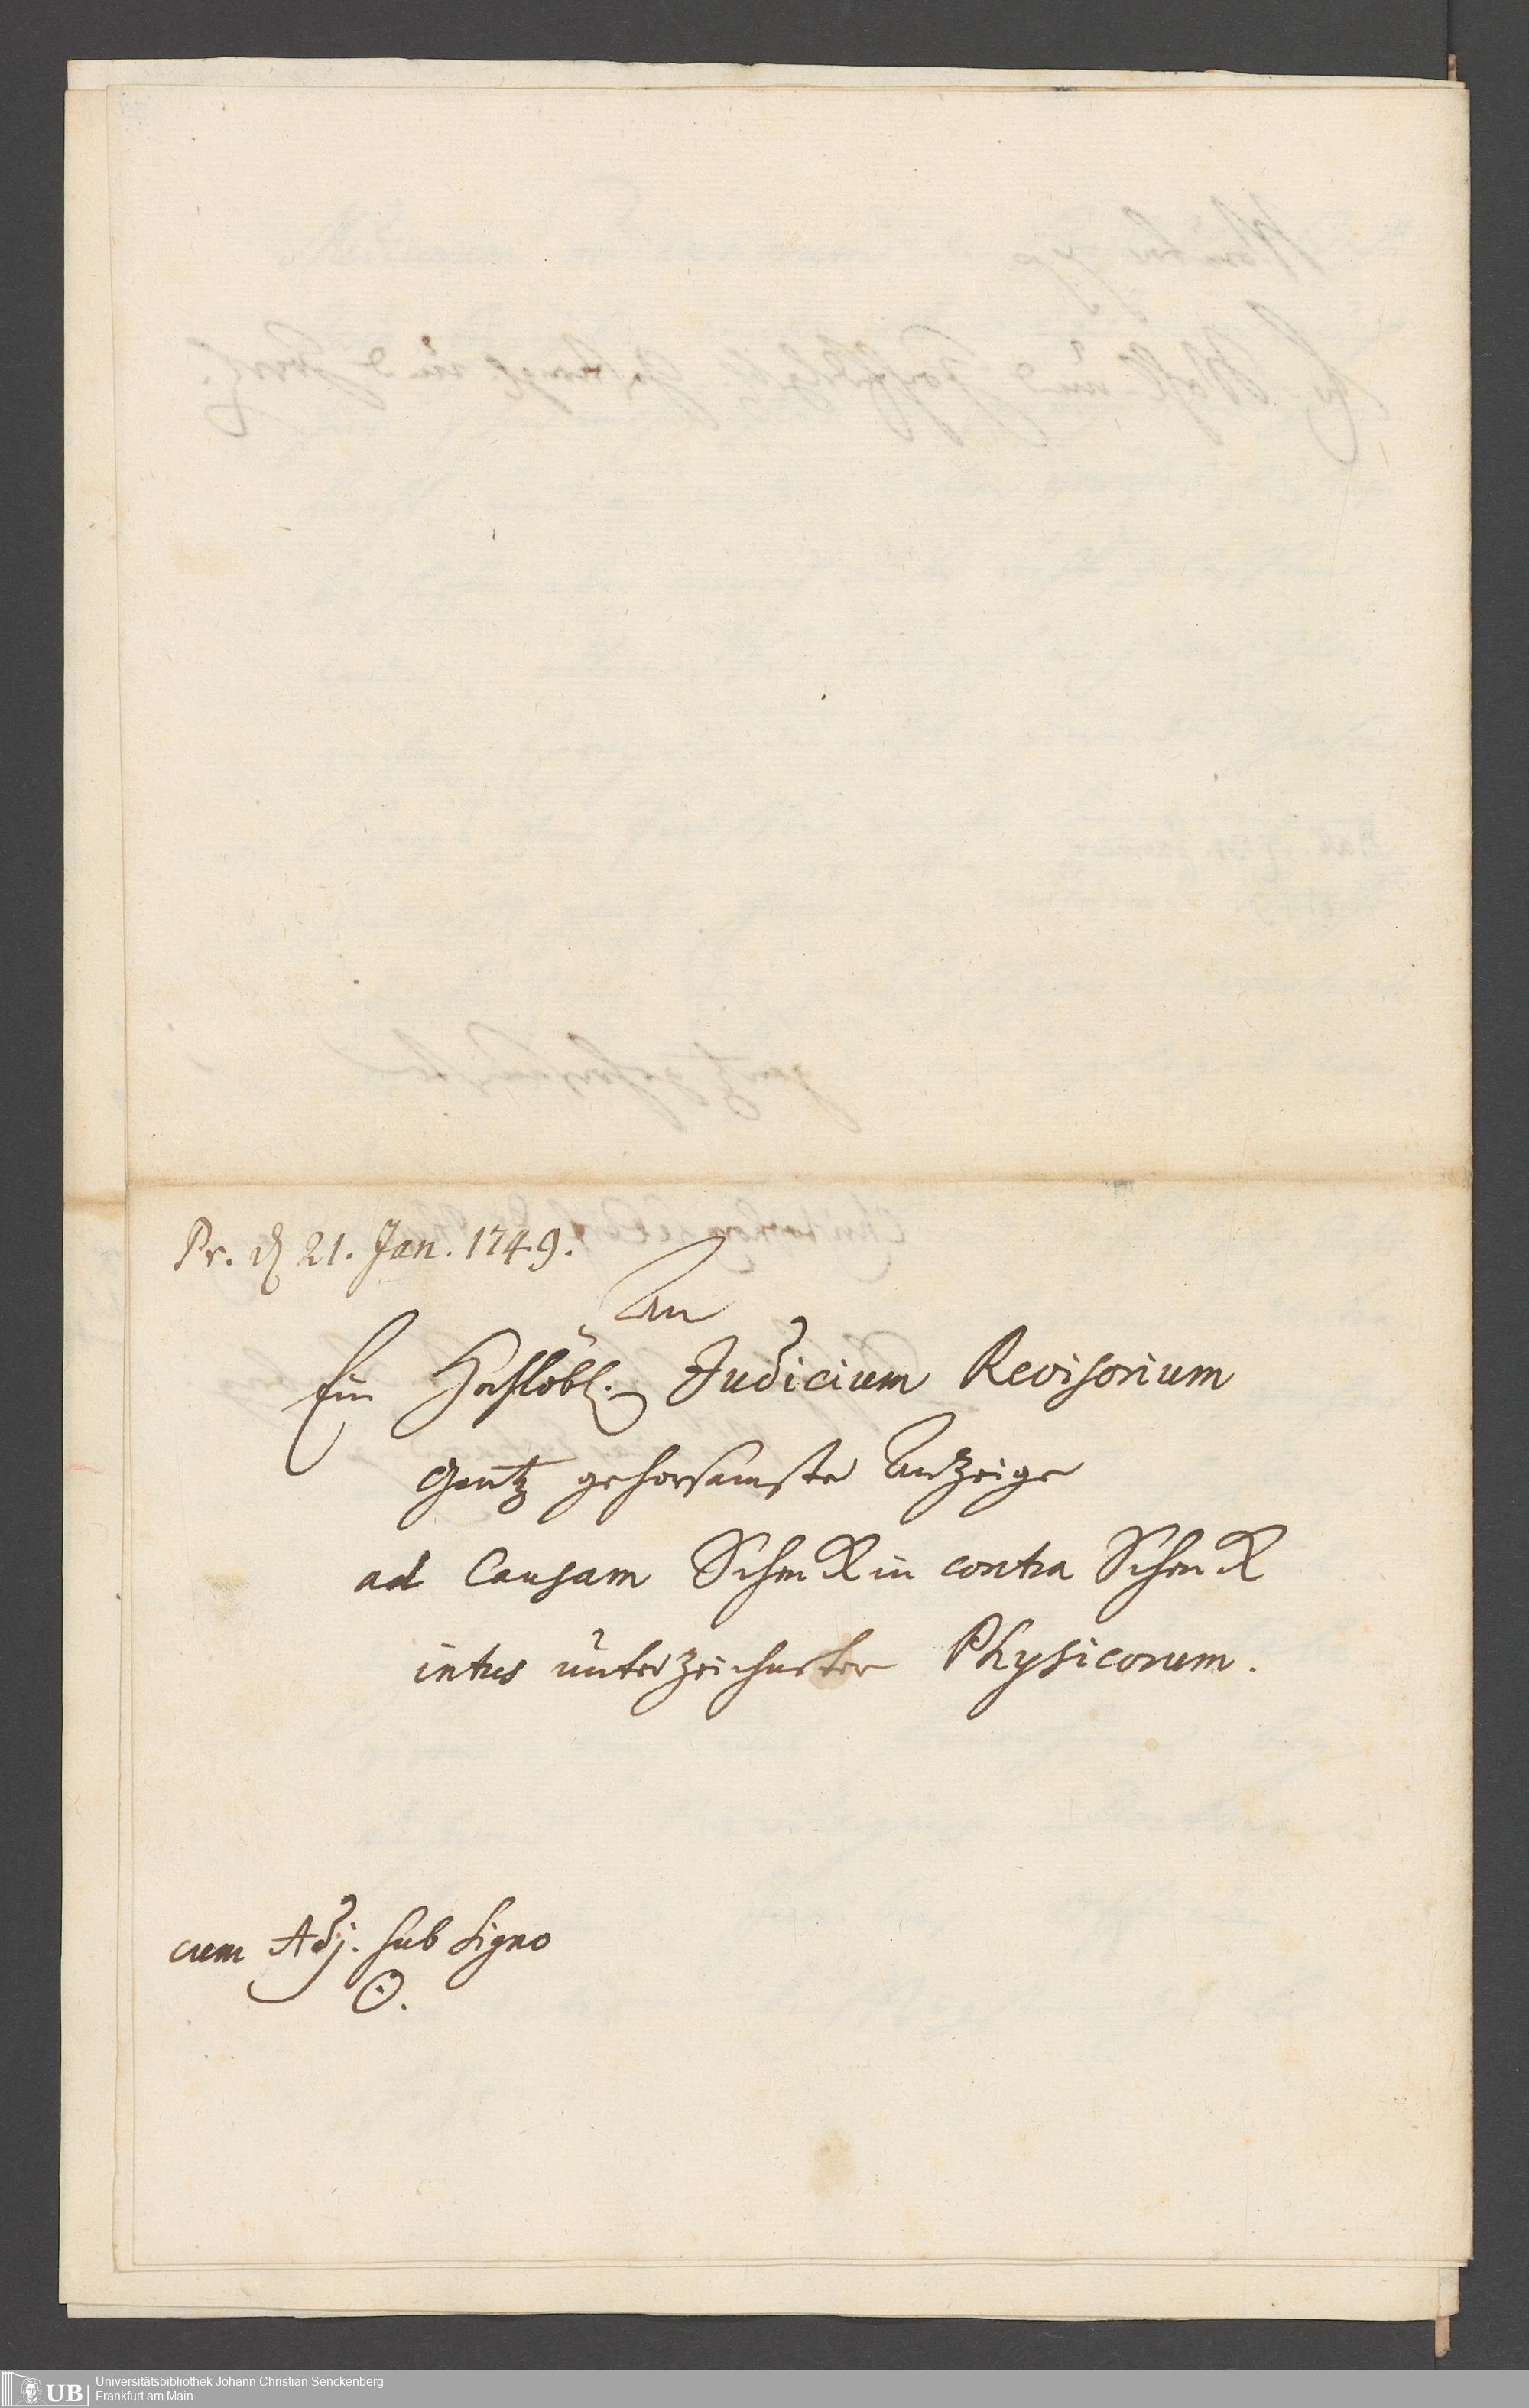 Pr. d 21. Jan. 1749.
An
Ein Hochlöbl. Judicium Revisorium
gantz gehorsamste Anzeige
ad Causam Schenckin contra Schenck
intus unterzeichneter Physicorum.
cum Adj. sub signo
☉.
UB Universitätsbibliothek Johann Christian Senckenberg
Frankfurt am Main